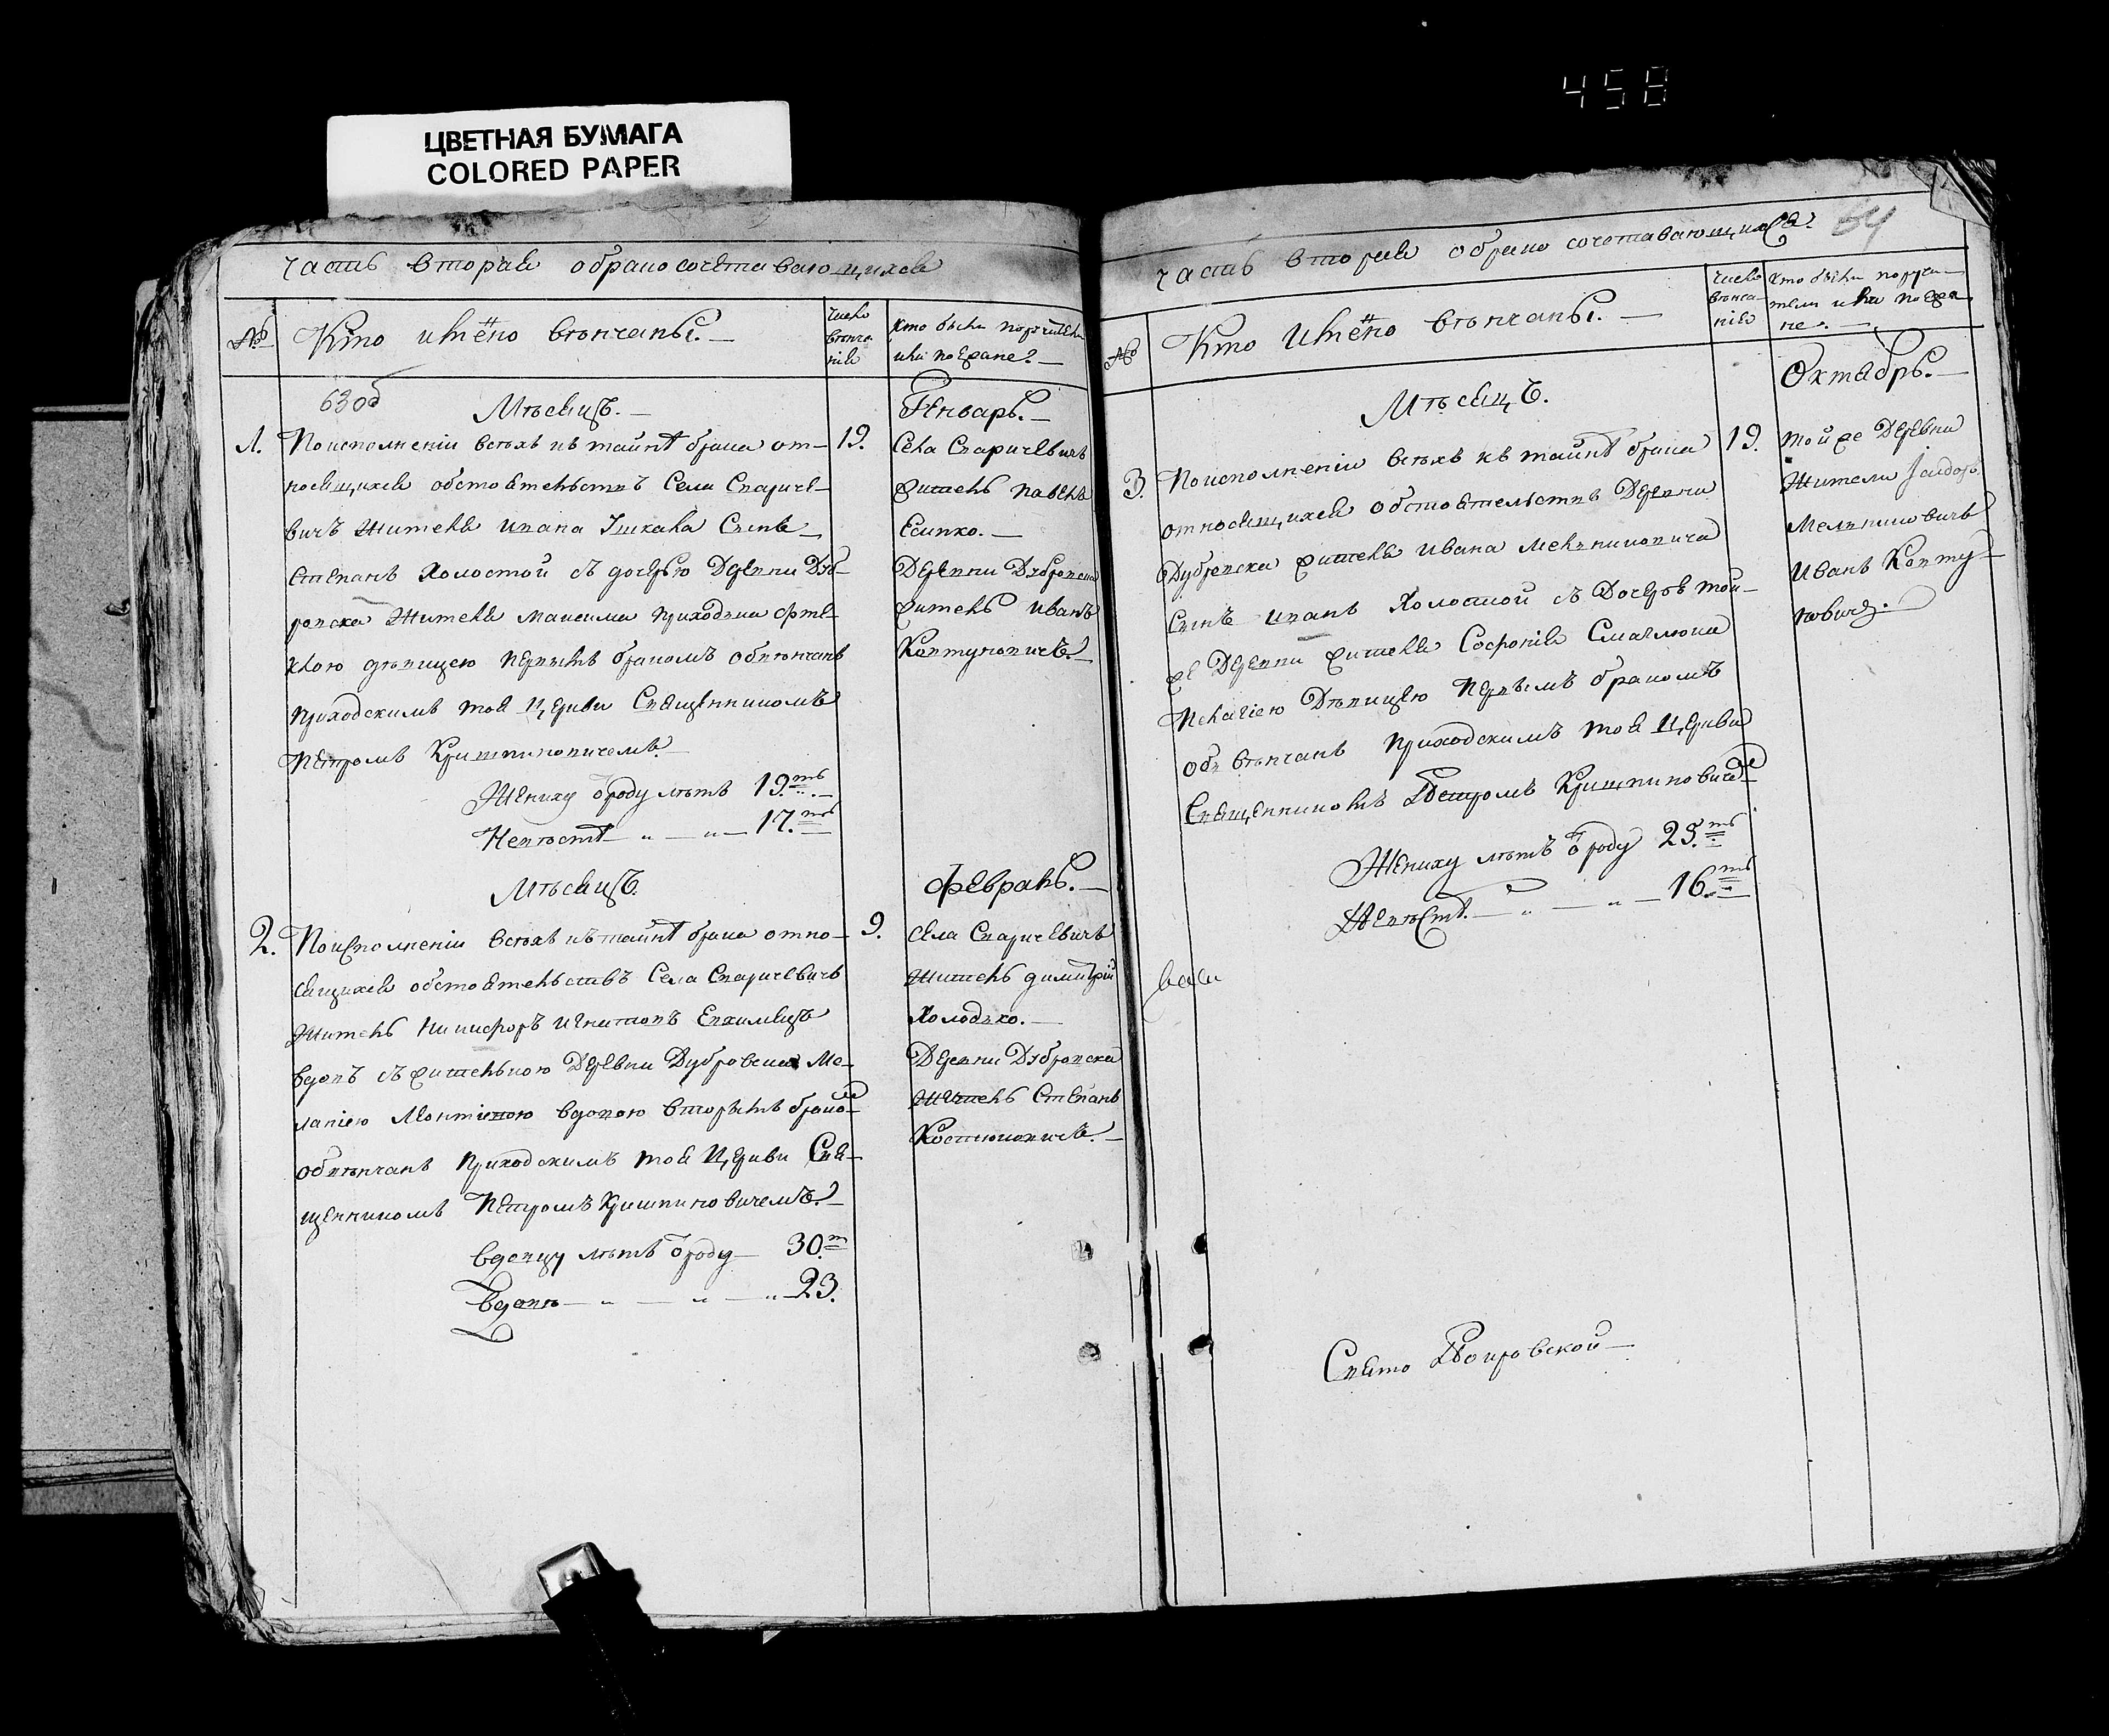 458
ЦВЕТНАЯ БУМАГА
COLORED PAPER
часть вторая о брако сочетавающихся
№
Кто имено венчаны.
число венчания
Кто были поручители или поезжане?
63об
Месяцъ.
Генварь.
1.
По исполнении всѣхъ къ тайнѣ брака от-
носящихся обстоятельствъ Села Спариче-
вичъ жителя Ивана Сынъ
Степанъ холостой съ дочерью деревни Дуб-
ровска жителя Максима
дѣвицею первымъ бракомъ обвѣнчанъ
приходскимъ тоя церкви Священникомъ
Петромъ Криштиновичемъ
Жениху ѿ роду лѣтъ 19.ть
Невѣстѣ „ — „ — 17.ть
19.
Села Спаричевичъ
житель Павелъ
Есипко.
Деревни Дубровска
житель Иванъ
Месяцъ.
Февраль.
2.
По исполнении всѣхъ къ тайнѣ брака отно-
сящихся обстоятельствъ Села Спаричевичъ
житель Никифоръ Игнатовъ
вдовъ съ жителькою деревни Дубровска Ме-
ланиею вдовою вторымъ брако
обвѣнчанъ приходскимъ тоя церкви Свя-
щенникомъ Петромъ Криштиновичемъ.
Вдовцу лѣтъ ѿ роду — 30.т
Вдовѣ — „ — „ — „ — 23.
9.
Села Спаричевичъ
житель Димитрій
Холодько.
Деревни Дубровска
житель Степанъ
Костюковичъ.
часть вторая о брако сочетавающихся
64
№
Кто имено венчаны.
число венчания
Кто были поручители или поезжане.
Месяцъ.
Октябрь.
3.
По исполнении всѣхъ къ тайнѣ брака
относящихся обстоятельствъ деревни
Дубровска жителя Ивана Мельниковича
Сынъ Иванъ холостой съ дочерью той-
же деревни жителя Софрония
Пелагиею дѣвицею первымъ бракомъ
обвѣнчанъ приходскимъ тоя церкви
Священникомъ Петромъ Криштиновиче
Жениху лѣтъ ѿ роду 25.ть
Невѣстѣ. — „ — „ — 16.ть
19.
той же деревни
жители
Мельниковичъ
Иванъ
Свято Покровской